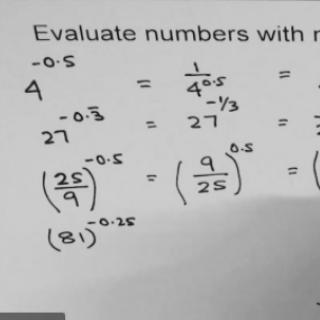 Evaluate numbers with
4^{-0.5} = \frac{1}{4^{0.5}} =
27^{-0.\overline{3}} = 27^{-1/3} =
\left(\frac{25}{9}\right)^{-0.5} = \left(\frac{9}{25}\right)^{0.5} = (
(81)^{-0.25}